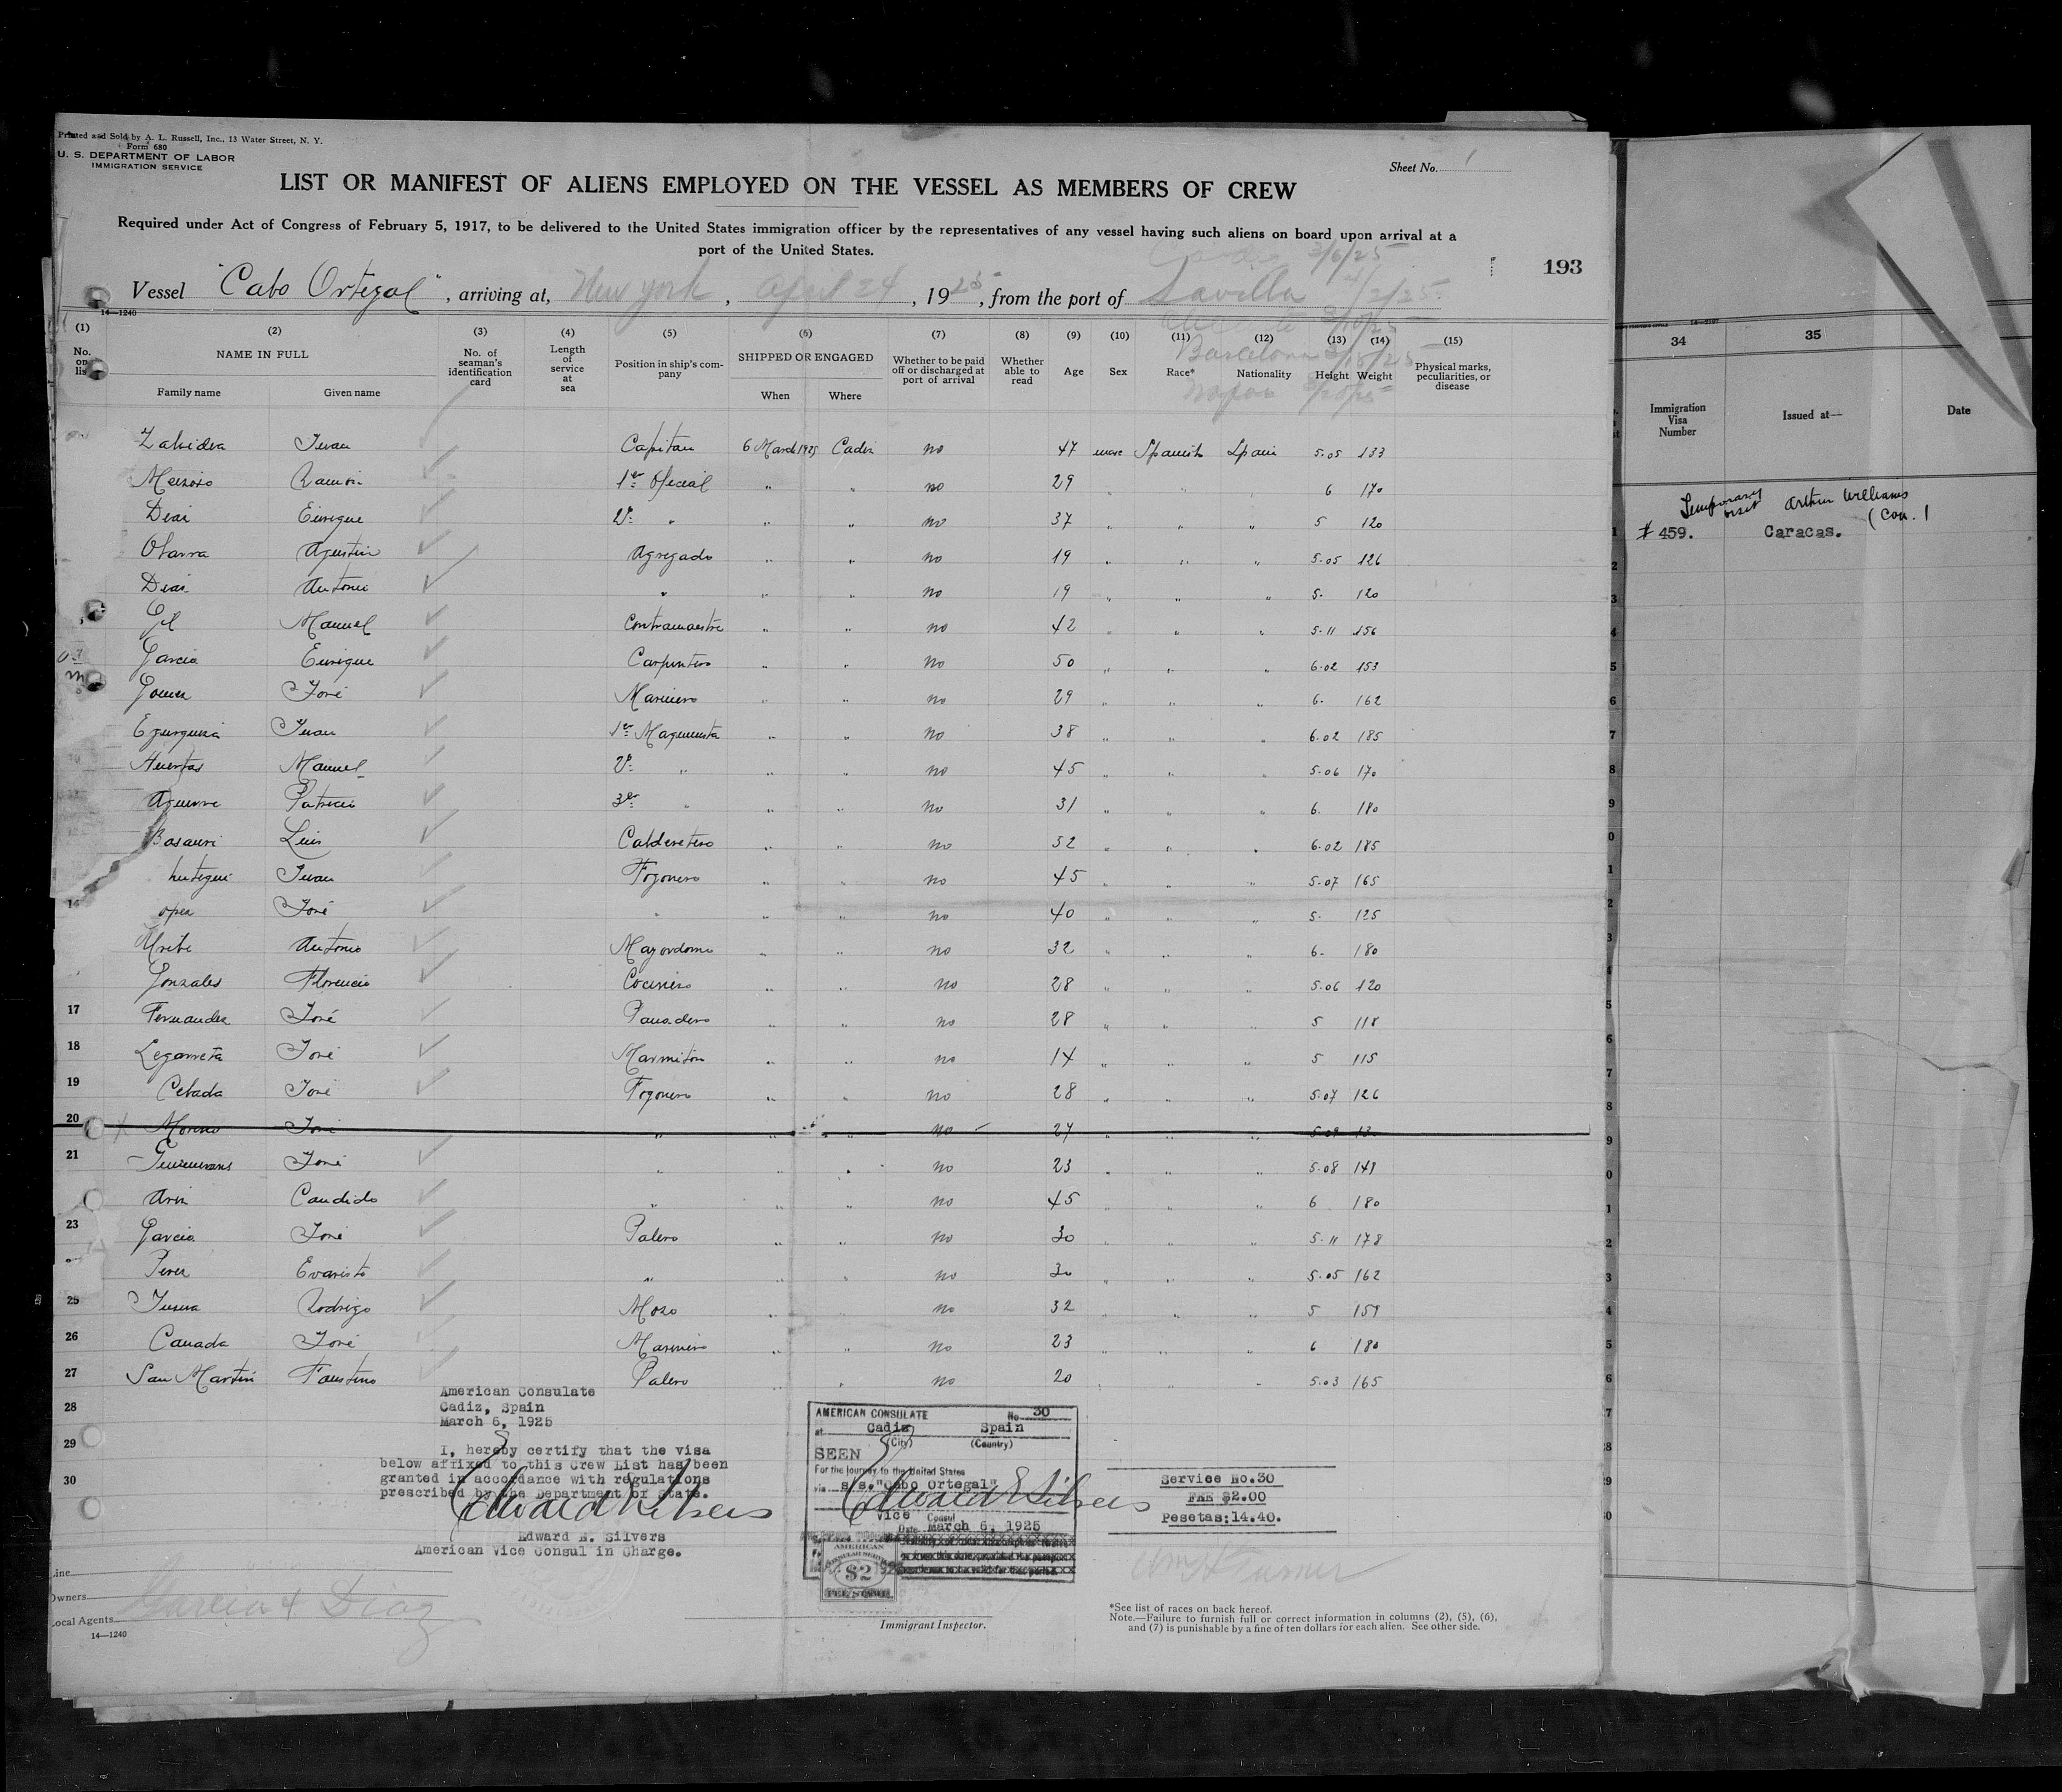 Printed and Sold by A. L. Russell, Inc., 13 Water Street, N. Y.
Form 680
U. S. DEPARTMENT OF LABOR
IMMIGRATION SERVICE
Sheet No. 1
LIST OR MANIFEST OF ALIENS EMPLOYED ON THE VESSEL AS MEMBERS OF CREW
Required under Act of Congress of February 5, 1917, to be delivered to the United States immigration officer by the representatives of any vessel having such aliens on board upon arrival at a
port of the United States.
3/6/25
193
Vessel "Cabo Ortegal", arriving at, New York, April 24, 1925, from the port of Savilla 4/2/25
14—1240
Alicante 3/10/25
Barcelona 3/18/25
(1) (2) (3) (4) (5) (6) (7) (8) (9) (10) (11) (12) (13) (14) (15)
No. on list NAME IN FULL No. of seaman's identification card Length of service at sea Position in ship's company SHIPPED OR ENGAGED Whether to be paid off or discharged at port of arrival Whether able to read Age Sex Race* Nationality Height Weight Physical marks, peculiarities, or disease
Family name Given name When Where
Juan Capitan 6 March 1925 Cadiz no 47 Spanish Spain 5.05 133
Ramon 1er Oficial " " no 29 " " 6 170
Diaz Enrique 2º " " " no 37 " " " 5 120
Obarra Agustin Agregado " " no 19 " " " 5.05 126
Diaz Antonio " " " no 19 " " " 5. 120
Gil Manuel Contramaestre " " no 42 " " " 5.11 156
Garcia Enrique Carpintero " " no 50 " " " 6.02 153
Gomez José Marinero " " no 29 " " " 6. 162
Eguiguria Juan 1er Maquinista " " no 38 " " " 6.02 185
Huertas Manuel 2º " " " no 45 " " " 5.06 170
Aguirre Patricio 3er " " " no 31 " " " 6. 180
Basauri Luis Calderetero " " no 32 " " " 6.02 185
Juan Fogonero " " no 45 " " " 5.07 165
14 opez José " " " no 40 " " " 5. 125
Uribe Antonio Mayordomo " " no 32 " " " 6. 180
Gonzales Florencio Cocinero " " no 28 " " " 5.06 120
17 Fernandez José Panadero " " no 28 " " " 5 118
18 Legarreta José Marmiton " " no 14 " " " 5 115
19 Cebada José Fogonero " " no 28 " " " 5.07 126
20 Moreno José " " " no 27 " " " 5.09
21 José " " " no 23 " " " 5.08 149
Ariz Candido " " " no 45 " " " 6 180
23 Garcia José Palero " " no 30 " " " 5.11 178
Perez Evaristo " " " no 30 " " " 5.05 162
25 Rodrigo Mozo " " no 32 " " " 5 159
26 Canada José Marinero " " no 23 " " " 6 180
27 San Martin Faustino Palero " " no 20 " " " 5.03 165
28
29
30
American Consulate
Cadiz, Spain
March 6, 1925
I, hereby certify that the visa
below affixed to this Crew List has been
granted in accordance with regulations
prescribed by the Department of State.
Edward E. Silvers
Edward E. Silvers
American Vice Consul in Charge.
AMERICAN CONSULATE No. 30
at Cadiz Spain
(City) (Country)
SEEN
For the journey to the United States
via s/s. "Cabo Ortegal"
Edward E Silvers
Vice Consul
Date March 6, 1925
AMERICAN
CONSULAR SERVICE
$2
FEE STAMP
Service No.30
FEE $2.00
Pesetas:14.40.
Wm H Turner
Line
Owners
Local Agents Garcia & Diaz
14—1240
Immigrant Inspector.
*See list of races on back hereof.
Note.—Failure to furnish full or correct information in columns (2), (5), (6),
and (7) is punishable by a fine of ten dollars for each alien. See other side.
34 35
Immigration Visa Number Issued at— Date
Temporary visit Arthur Williams
(Con.)
# 459. Caracas.